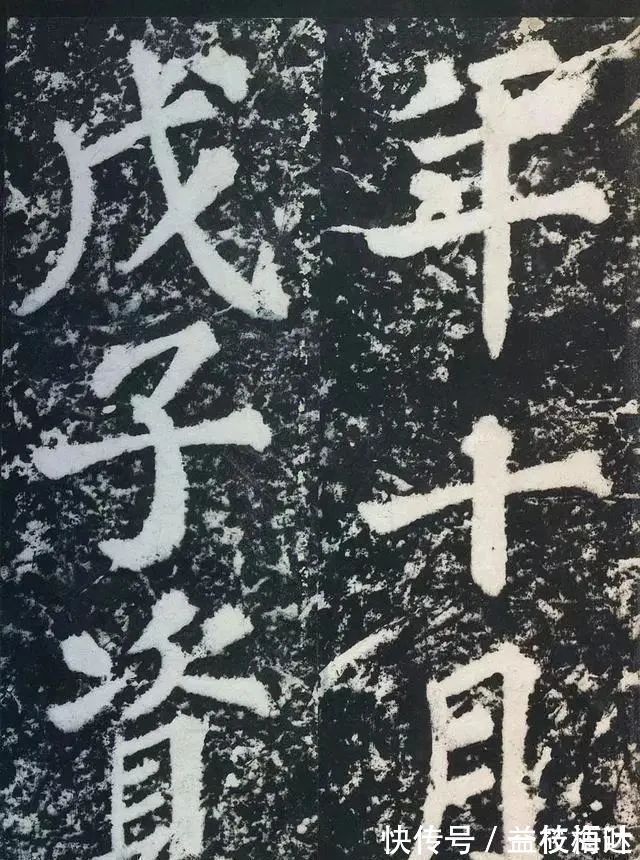 年十月
戊子資
快传号 / 益枝梅